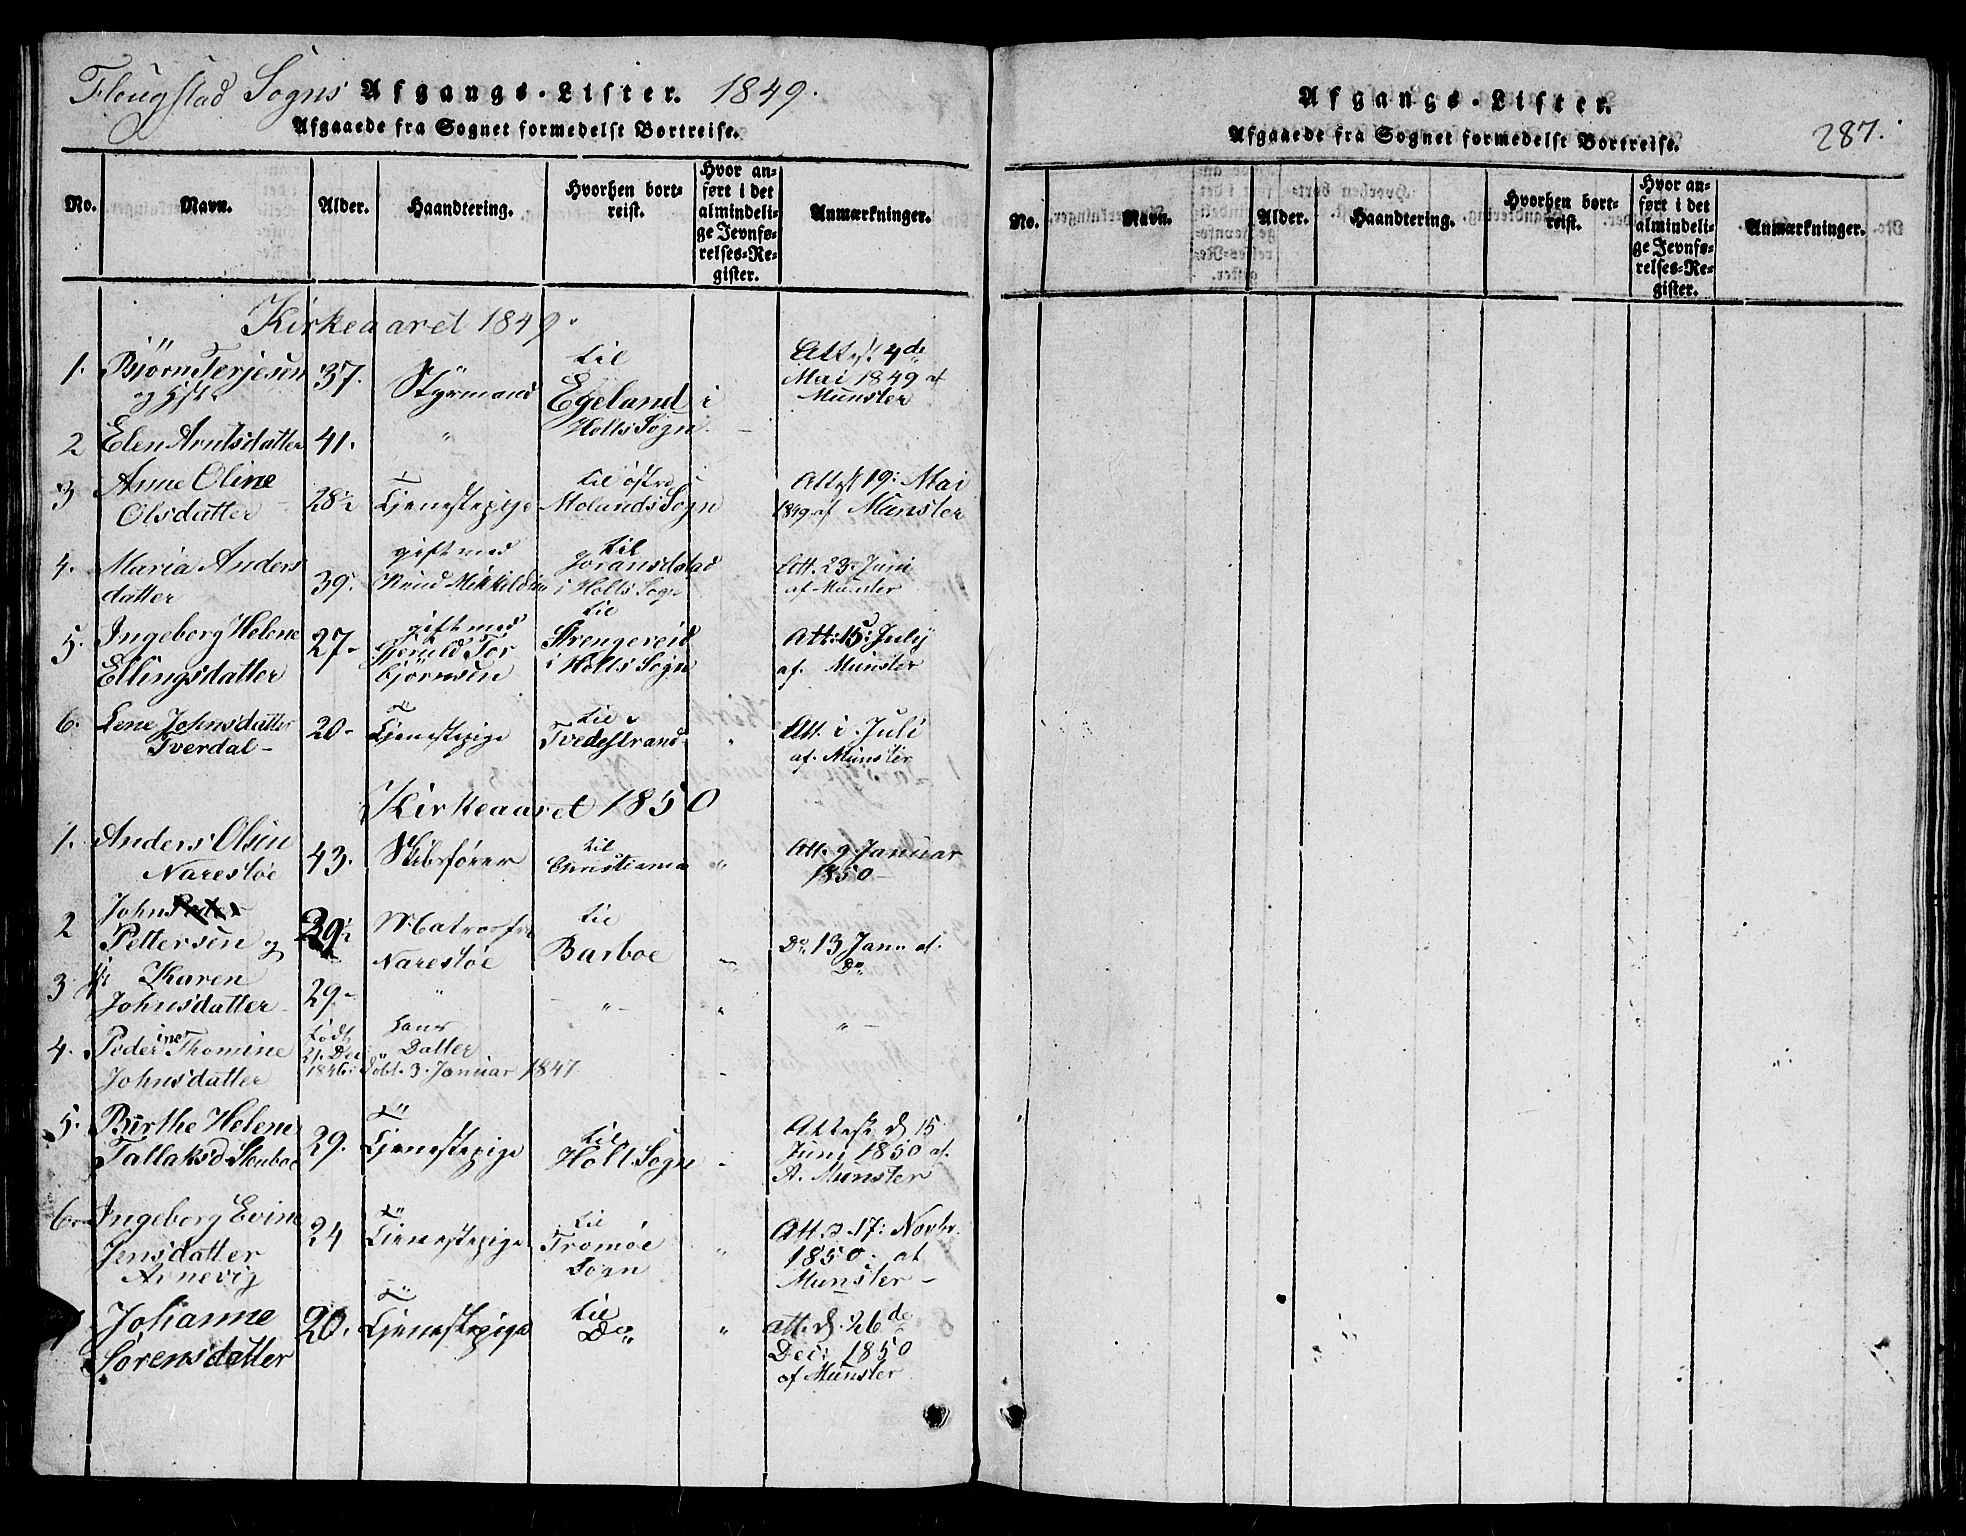 Flougstad Sogns Afgangs-Lister. 1849.
Afgaaede fra Sognet formedelst Bortreise.
No. Navn. Alder. Haandtering. Hvorhen bort-reist. Hvor an-ført i det almindeli-ge Jevnfø-relses-Re-gister. Anmærkninger.
Kirkeaaret 1849.
1. Bjørn Terjesen 37. Styrmand til Egeland i Holts Sogn Attest 4de Mai 1849 af Munster
2 Elen Arntsdatter 41. "
3 Anne Oline Olsdatter 28½ Tjenestepige til østre Molands Sogn Attest 19: Mai 1849 af Munster
4. Maria Anders datter 39. gift med Knud Mikkildsen til Goransdalstad i Holts Sogn Att. 23. Juni af Munster
5. Ingeborg Helene Ellingsdatter 27- gift med Gjeruld Tor bjørnsen til Strengereid i Holts Sogn Att: 15: July af. Munster
6. Lene Johnsdatter Tverdal- 20- Tjenestepige til Tvedestrand " Att. i Juli af. Munster
Kirkeaaret 1850
1. Anders Olsen Narestøe 43. Skibsfører til Christiania " Att. 9 Januar 1850-
2 John Pettersen og 29½ Matros fra Narestøe til Barboe " Do 13 Janu af. Do
3 Karen Johnsdatter 29- " " "
4. Peder ine Thomine Johnsdatter født 21. Dec 1846. Datter døbt. 3. Januar 1847
5. Birthe Helene Tallaksd. Skouboe 29. Tjenestepige til Holt Sogn Attest d 15 Juni 1850 af. A. Munster
6. Ingeborg Evine Jensdatter Arnevig 24 Tjenestepige til Tromøe Sogn " Att d 17: Novbr. 1850. af Munster-
Johanne Sørensdatter 20. Tjenestepige til Do " att. d. 26de Dec: 1850 af Munster
Afgangs-Lister.
287.
Afgaaede fra Sognet formedelst Bortreise.
No. Navn. Alder. Haandtering. Hvorhen bort-reist. Hvor an-ført i det almindeli-ge Jevnfø-relses-Re-gister. Anmærkninger.